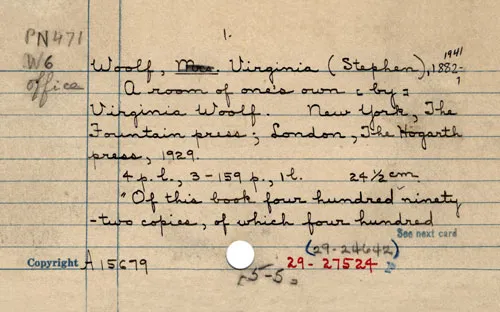 PN471
W6
office
1.
Woolf, Mrs. Virginia (Stephen), 1882-1941
A room of one's own [by]
Virginia Woolf. New York, The
Fountain press; London, The Hogarth
press, 1929.
4 p. l., 3-159 p., 1 l. 24½ cm.
"Of this book four hundred ninety
-two copies, of which four hundred
See next card
(29-24642)
Copyright A 15679
29-27524